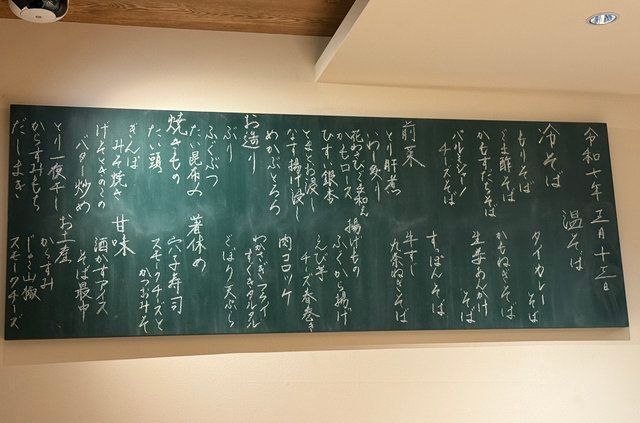 令和七年 三月十三日
冷そば
もりそば
ごま酢そば
かもすだちそば
パルミジャーノ
チーズそば
温そば
タイカレーそば
かもねぎそば
生姜あんかけそば
すっぽんそば
牛すじ
九条ねぎそば
前菜
とり肝煮
いわし炙り
花わさびくるみ和え
かもロース
ひすい銀杏
とまとお浸し
なす揚げ浸し
めかぶとろろ
お造り
ぶり
ふくぶつ
たい昆布〆
焼きもの
たい頭
ぎんぽ
みそ焼き
げそときのこの
バター炒め
とり一夜干し
からすみもち
だしまき
揚げもの
ふくから揚げ
えび芋
チーズ春巻き
肉コロッケ
わかさぎフライ
すぐきタルタル
ごぼう天ぷら
箸休め
穴子寿司
スモークチーズと
かつおみそ
甘味
酒かすアイス
そば最中
お土産
からすみ
じゃこ山椒
スモークチーズ